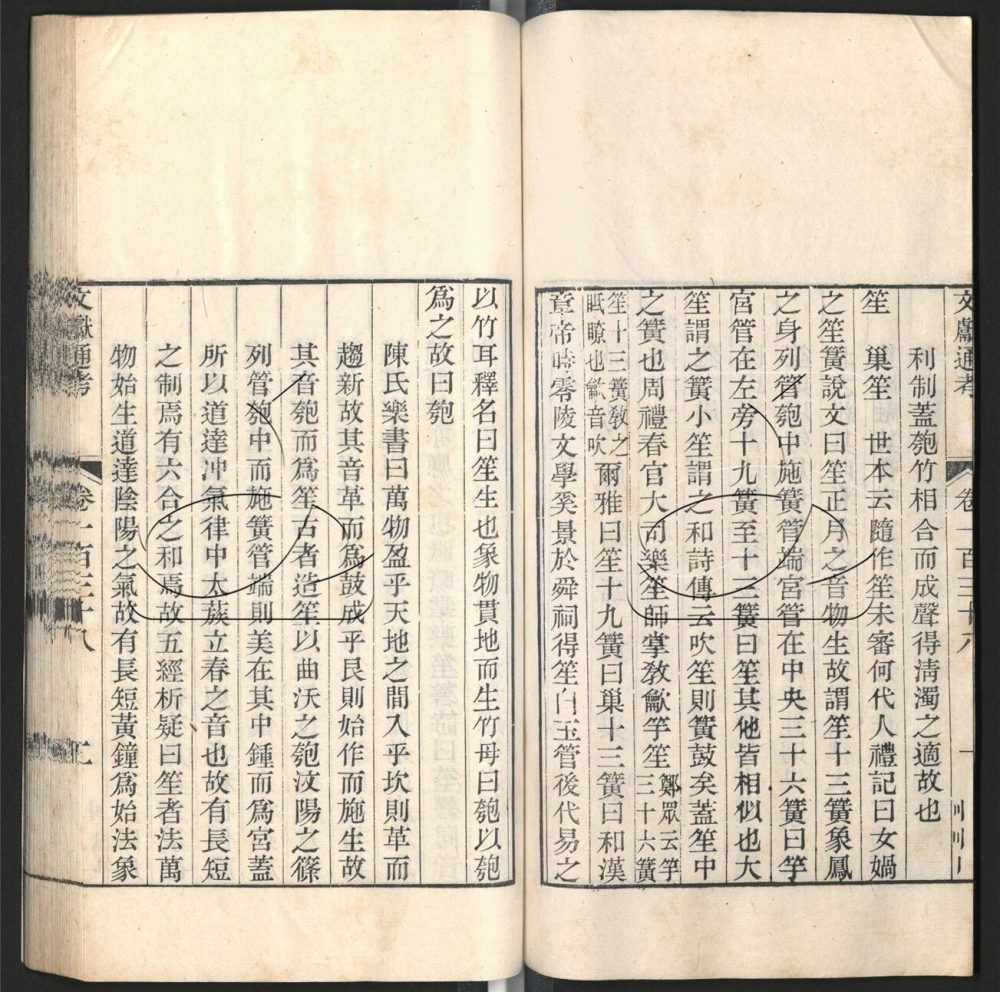 文獻通考 卷一百三十八
利制蓋匏竹相合而成聲得清濁之適故也
笙 巢笙 世本云隨作笙未審何代人禮記曰女媧
之笙簧說文曰笙正月之音物生故謂笙十三簧象鳳
之身列管匏中施簧管端宮管在中央三十六簧曰竽
宮管在左旁十九簧至十三簧曰笙其他皆相似也大
笙謂之簧小笙謂之和詩傳云吹笙則簧鼓矣蓋笙中
之簧也周禮春官大司樂笙師掌敎龡竽笙鄭眾云竽三十六簧
笙十三簧敎之眡瞭也龡音吹爾雅曰笙十九簧曰巢十三簧曰和漢
章帝時零陵文學奚景於舜祠得笙白玉管後代易之
以竹耳釋名曰笙生也象物貫地而生竹母曰匏以匏
爲之故曰匏
陳氏樂書曰萬物盈乎天地之間入乎坎則革而
趨新故其音革而爲鼓成乎艮則始作而施生故
其音匏而爲笙古者造笙以曲沃之匏汶陽之篠
列管匏中而施簧管端則美在其中鍾而爲宮蓋
所以道達沖氣律中太蔟立春之音也故有長短
之制焉有六合之和焉故五經析疑曰笙者法萬
物始生道達陰陽之氣故有長短黃鐘爲始法象
文獻通考 卷一百三十八